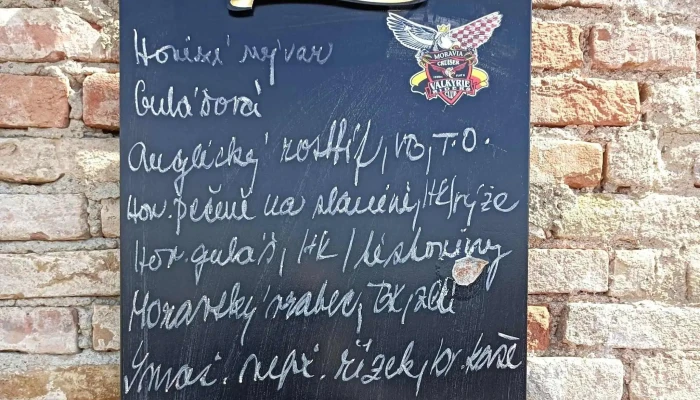 Hovězí vývar
Gulášová
Anglický rostbíf, VB, T.O.
Hov. pečeně na slanině, HK/rýže
Hov. guláš, HK / těstoviny
Moravský vrabec, BK, zelí
Smaž. vepř. řízek, br. kaše
MORAVIA
CRUISER
VALKYRIE
RIDERS
CLUB